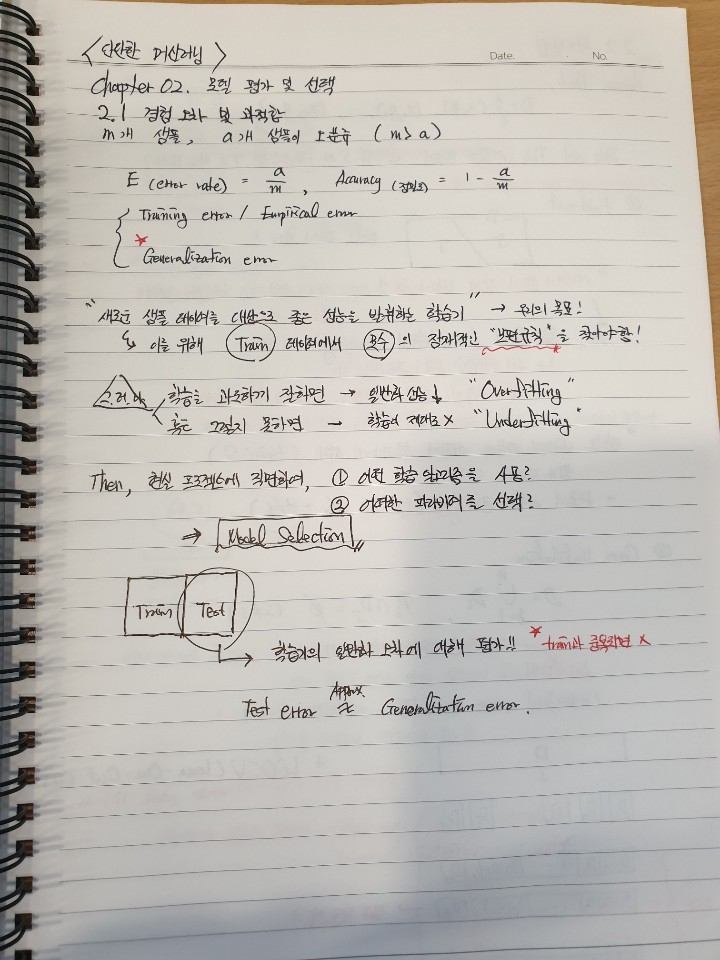 <단단한 머신러닝>
Date. No.
Chapter 02. 모델 평가 및 선택
2.1 경험 오차 및 과적합
m개 샘플, a개 샘플이 오분류 (m≥a)
E (error rate) = a/m, Accuracy (정밀도) = 1 - a/m
Training error / Empirical error
* Generalization error
"새로운 샘플 데이터를 대상으로 좋은 성능을 발휘하는 학습기" → 우리의 목표!
↳ 이를 위해 Train 데이터에서 다수의 잠재적인 "보편규칙"을 찾아야 함!
그러나 학습을 과도하기 잘하면 → 일반화 성능↓ "Overfitting"
혹은 그렇지 못하면 → 학습이 제대로 X "Underfitting"
Then, 현실 프로젝트에 직면하여, ① 어떤 학습 알고리즘을 사용?
② 어떠한 파라미터를 선택?
⇒ Model Selection
Train Test
→ 학습기의 일반화 오차에 대해 평가!! * train과 중복되면 X
Test error ≈ Approx. Generalization error.